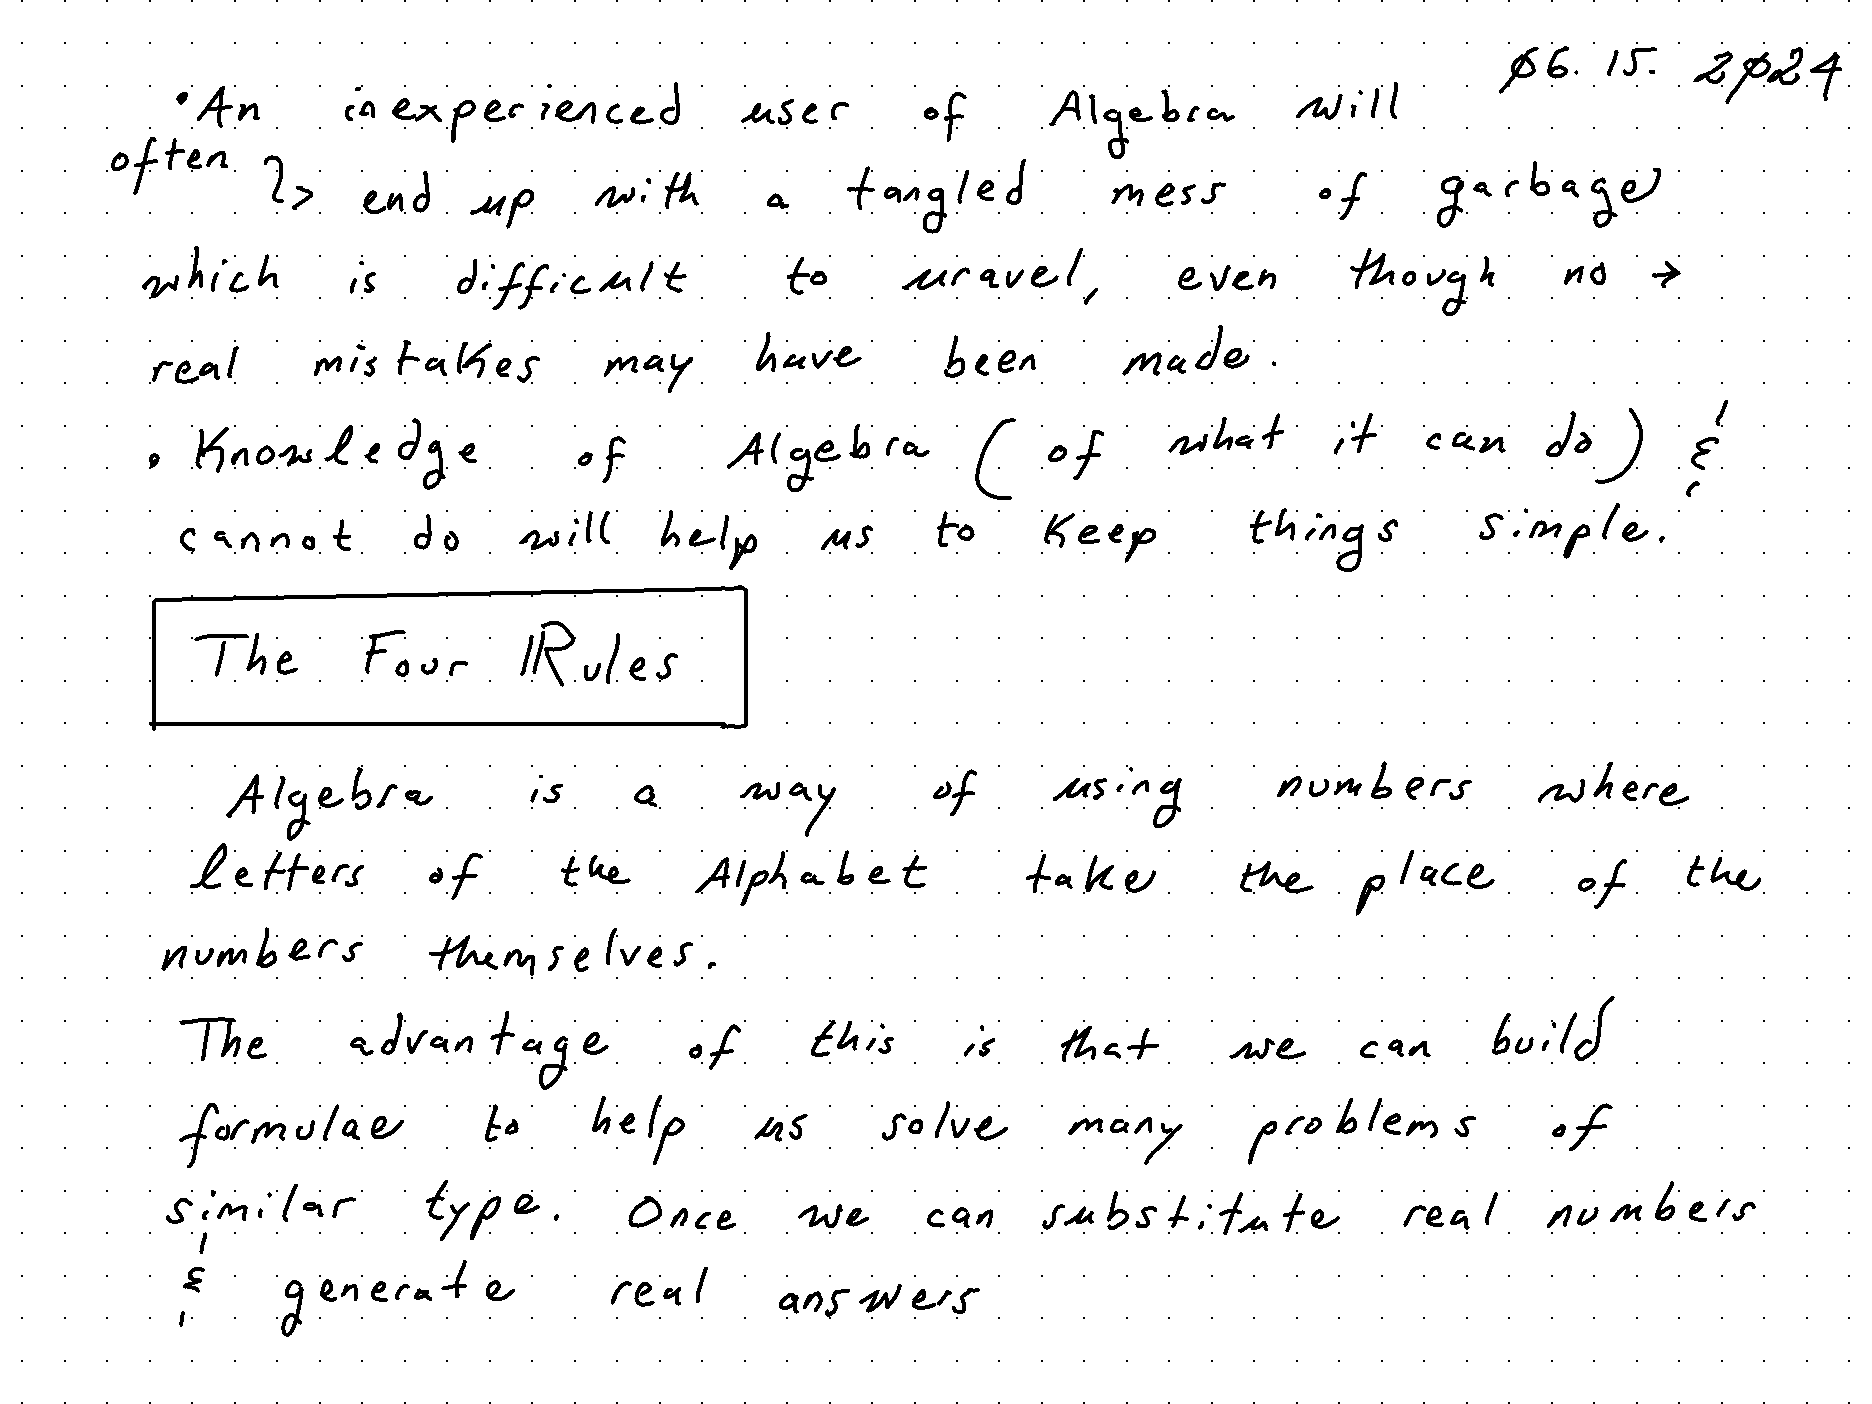 06.15.2024
• An inexperienced user of Algebra will
often
end up with a tangled mess of garbage
which is difficult to uravel, even though no →
real mistakes may have been made.
• Knowledge of Algebra (of what it can do) &
cannot do will help us to keep things simple.
The Four Rules
Algebra is a way of using numbers where
letters of the Alphabet take the place of the
numbers themselves.
The advantage of this is that we can build
formulae to help us solve many problems of
similar type. Once we can substitute real numbers
& generate real answers